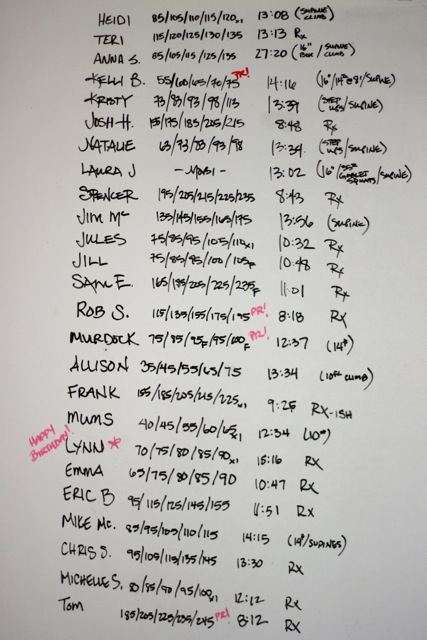 HEIDI 85/105/110/115/120x1 13:08 (SUPINE CLIMB)
TERI 115/120/125/130/135 13:13 Rx
ANNA S. 85/105/115/125/135 27:20 (16" BOX/SUPINE CLIMB)
KELLI B. 55/60/65/70/75 PR! 14:16 (16"/14# BALL/SUPINE)
KRISTY 73/83/93/98/113 13:39 (STEP UPS/SUPINE)
JOSH H. 155/175/185/205/215 8:48 Rx
NATALIE 63/73/83/93/98 13:34 (STEP UPS/SUPINE)
LAURA J - MOBI - 13:02 (16"/35# GOBLET SQUATS/SUPINE)
SPENCER 195/205/215/225/235 8:43 Rx
JIM MC 135/145/155/165/175 13:56 (SUPINE)
JULES 75/85/95/105/110x1 10:32 Rx
JILL 75/85/95/100/105F 10:48 Rx
SAM E. 165/185/205/225/235F 11:01 Rx
ROB S. 115/135/155/175/195 PR! 8:18 Rx
MURDOCK 75/85/95F/95/100F PR! 12:37 (14#)
ALLISON 35/45/55/65/75 13:34 (10FT CLIMB)
FRANK 155/185/205/215/225x1 9:25 RX-ISH
MUMS 40/45/55/60/65x1 12:34 (10#)
HAPPY BIRTHDAY!! LYNN * 70/75/80/85/90x1 15:16 Rx
EMMA 65/75/80/85/90 10:47 Rx
ERIC B 95/115/125/145/155 11:51 Rx
MIKE MC. 85/95/105/110/115 14:15 (14#/SUPINES)
CHRIS S. 95/105/115/135/145 13:30 Rx
MICHELLE S. 80/85/90/95/100x1 12:12 Rx
TOM 185/205/225/235/245 PR! 8:12 Rx